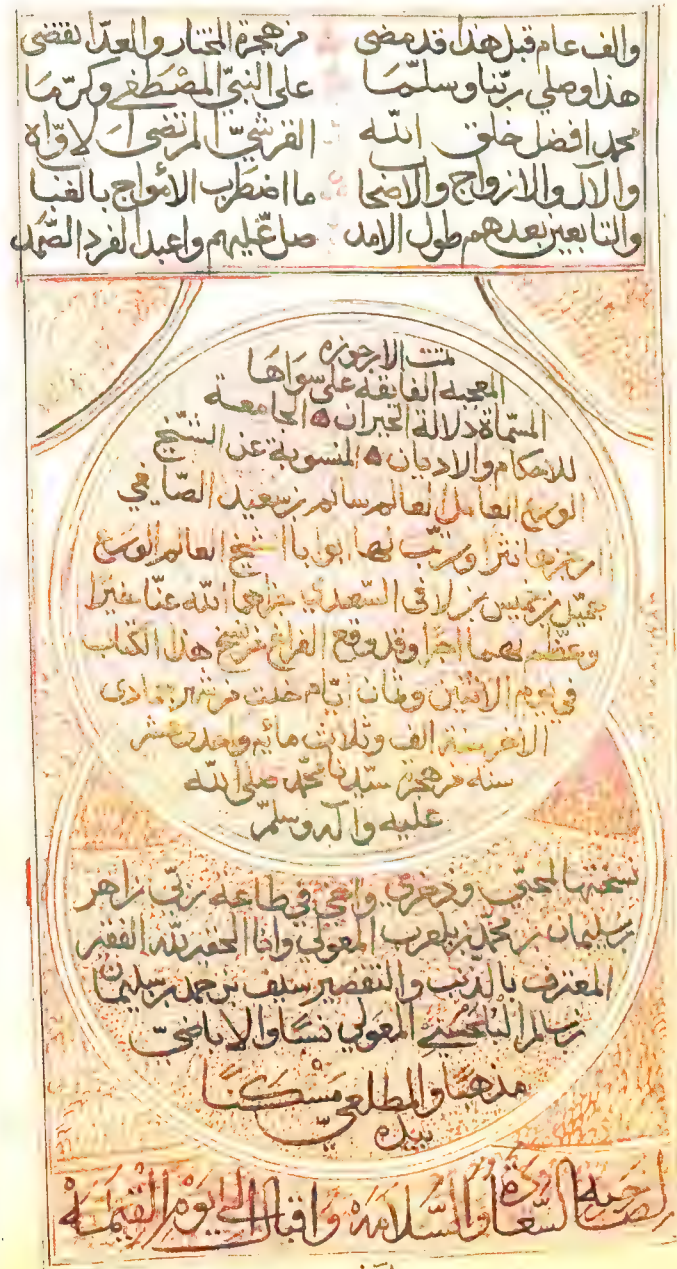 والف عام قبل هذا قد مضى من هجرة المختار والعدّ انقضى
هذا وصلى ربّنا وسلّما على النبيّ المصْطفى وكرّما
محمد افضل خلق الله القرشيّ المرتضى الاوّاه
والآل والازواج والاصحاب ما اضطرب الأمواج بالغباب
والتابعين بعدهم طول الامد صل عليهم واعبد الفرد الصّمد
تمت الارجوزه
المعجبه الفايقه على سواها
المسمّاة دلالة الحيران ۵ الجامعة
للاحكام والاديان ۵ المنسوبة عن الشيخ
الورع العامل العالم سالم بن سعيد الصايغي
ارجزها نثرا ورتّب لها ابوابا الشيخ العالم الورع
جميّل بن خميس بن لافي السّعدي جزاهما الله عنّا خيرا
وعظّم لهما اجرا وقد وقع الفراغ من نسخ هذا الكتاب
في يوم الاثنين وثمان ايّام خلت من شهر جمادى
الاخر سنة الف وثلاث مائه واحدى عشر
سنه من هجرة سيّدنا محمّد صلى الله
عليه وآله وسلّم
نسختها لمحبّي وذخري واخي في طاعة ربّي زاهر
بن سليمان بن محمّد بن بلعرب المعولي وانا الحقير لله الفقير
المعترف بالذنب والتقصير سيف بن حمد بن سليمان
بن سالم البلحسني المعولي نسبًا والاباضيّ
مذهبًا والمطلعيّ مسْكنًا
بيده
لصاحبه السّعادة والسّلامه واقبال الى يوم القيمه